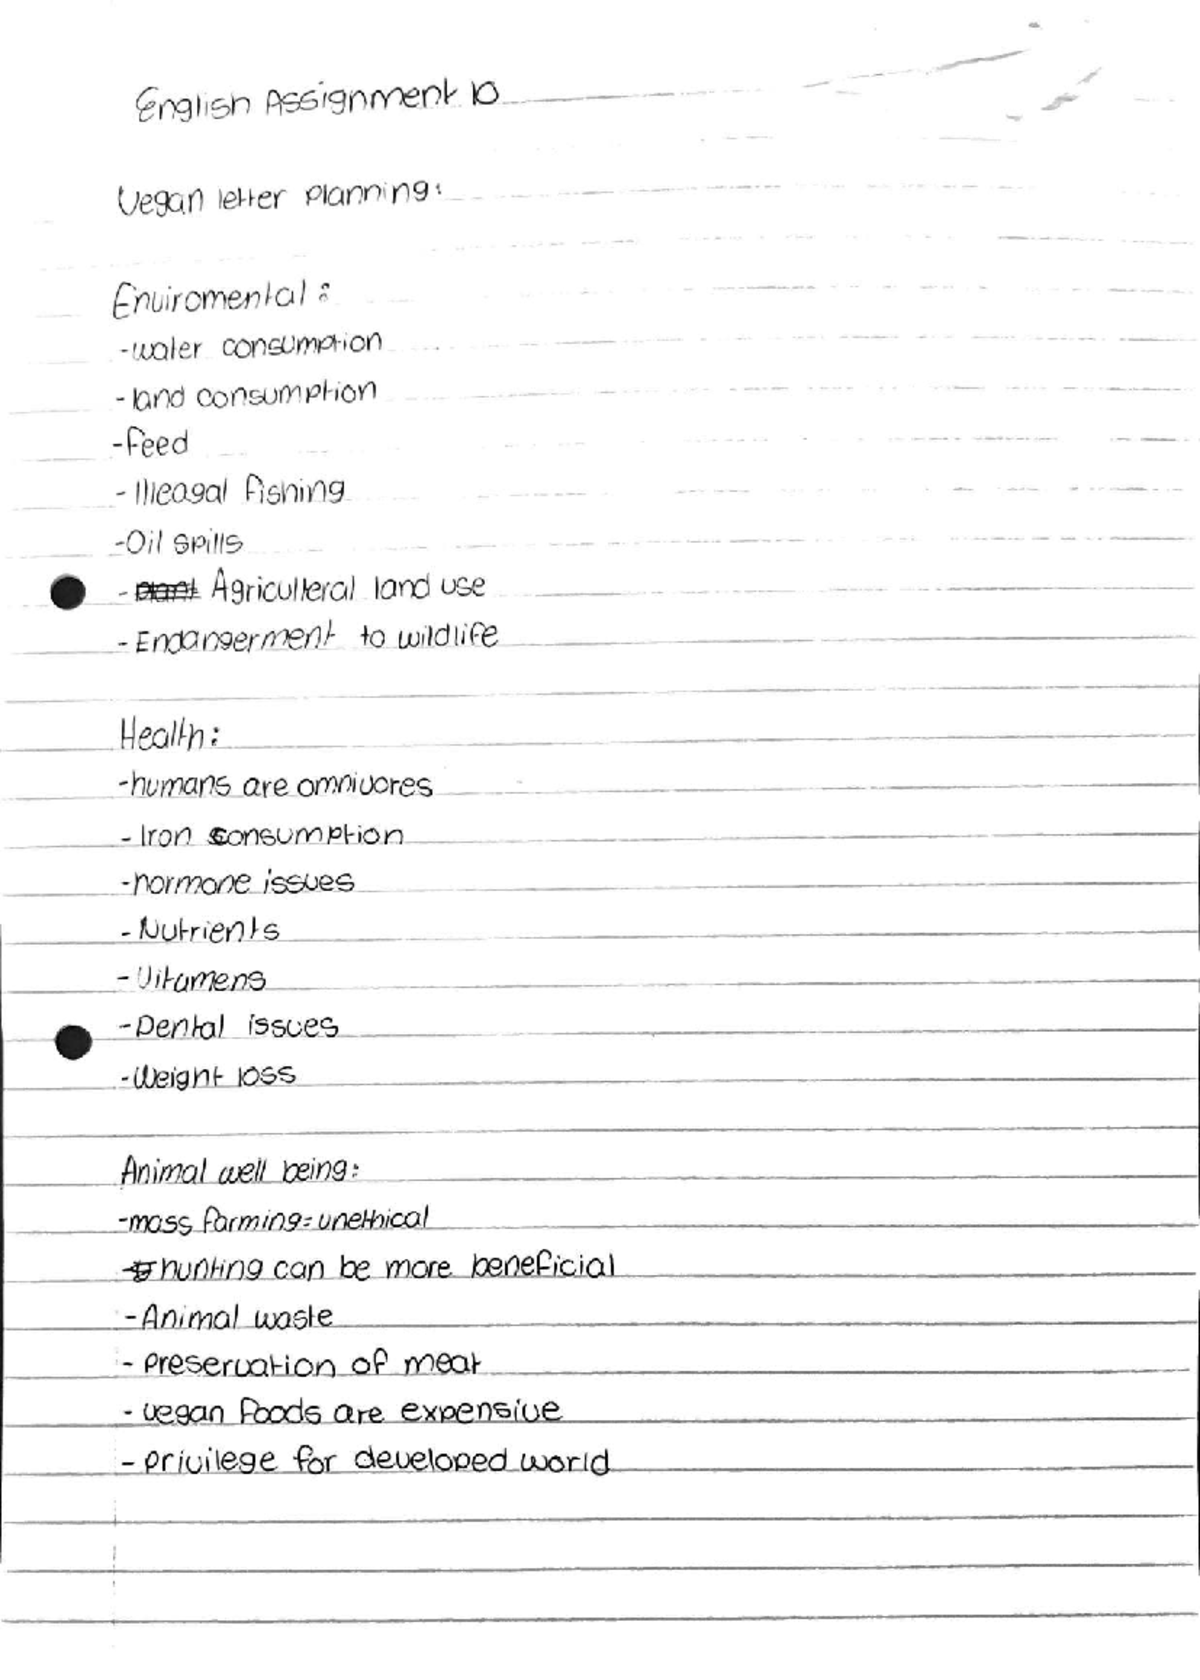 English Assignment 10
Vegan letter planning:
Enviromental:
-water consumption
-land consumption
-feed
-Illeagal fishing
-Oil spills
-plant Agriculteral land use
-Endangerment to wildlife
Health:
-humans are omnivores
-Iron consumption
-hormone issues
-Nutrients
-Vitamens
-Dental issues
-Weight loss
Animal well being:
-mass farming=unethical
-hunting can be more beneficial
-Animal waste
-preservation of meat
-vegan foods are expensive
-privilege for developed world